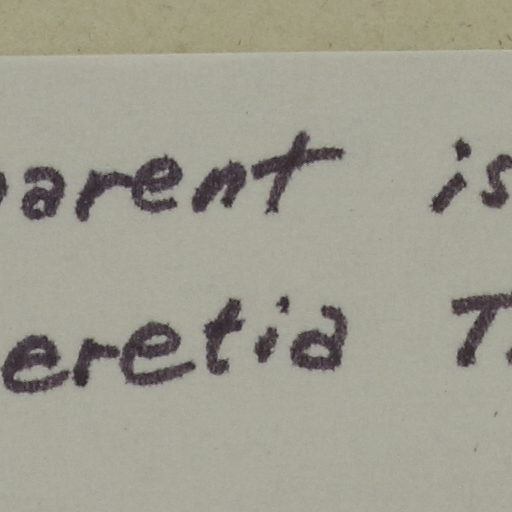 parent is
eretia T